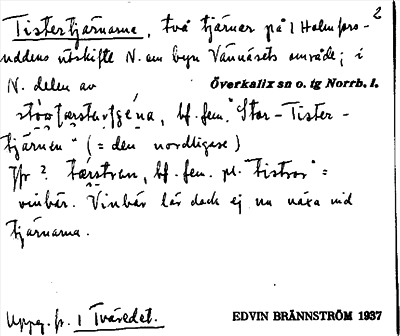 2
Tistertjärnarna, två tjärnar på 1 Holmfors-
uddens utskifte N. om byn Vännäsets område; i
N. delen av
Överkalix sn o. tg Norrb. l.
bf. fem. "Stor-Tister-
tjärnen" (= den nordligase)
Jfr ? bf. fem. pl. "tistror" =
vinbär. Vinbär lär dock ej nu växa vid
tjärnarna.
Uppg. fr. 1 Tväredet.
EDVIN BRÄNNSTRÖM 1937